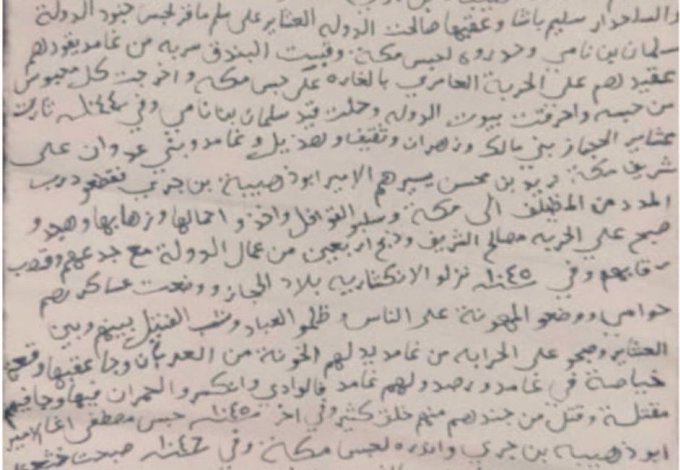 والساحدار سليم باشا وعقبها صالحت الدوله العشاير على سلم ما فر لحبس جنود الدولة
سلمان بن نامي وحدروه لحبس مكة وقبيت البندق سربه من غامد يقودهم
عقيد لهم على الحرية العامري بالغاره على حبس مكه واخرجت كل محبوس
من حبسه واحرقت بيوت الدوله وحلت قيد سلمان بن نامي وفي ١٠٤٤ـنه ثارت
عشاير الحجاز بني مالك وزهران وثقيف وهذيل وغامد وبني عدوان على
شريف مكة زيد بن محسن يسيرهم الامير ابوذهيبة بن جري فقطعو درب
المدد من المخلف الى مكة وسلبو القوافل واخذو احمالها وزهابها وهجدو
صبح علي الحربه مصالح الشريف وذبح اربعين من عمال الدولة مع جدعهم وقصب
رقابهم وفي ١٠٤٥ـنه نزلو الانكشاريه بلاد الحجاز ووضعت عساكرهم
حوامي ووضعو المهونة على الناس وظلمو العباد وشب الفتيل بينهم وبين
العشاير وصحو على الحرابه من غامد يدلهم الخونة من العربان وجا عقبها وقعة
خياصة في غامد ورصدو لهم غامد فالوادي وانكسرو الحمران فيها وجا فيهم
مقتلة وقتل من جندهم منهم خلق كثير وفي اخر ١٠٤٥ـنه حبس مصطفى اغا الامير
ابوذهيبه بن جري واندره لحبس مكة وفي ١٠٤٦ـنه صبحت خثعم